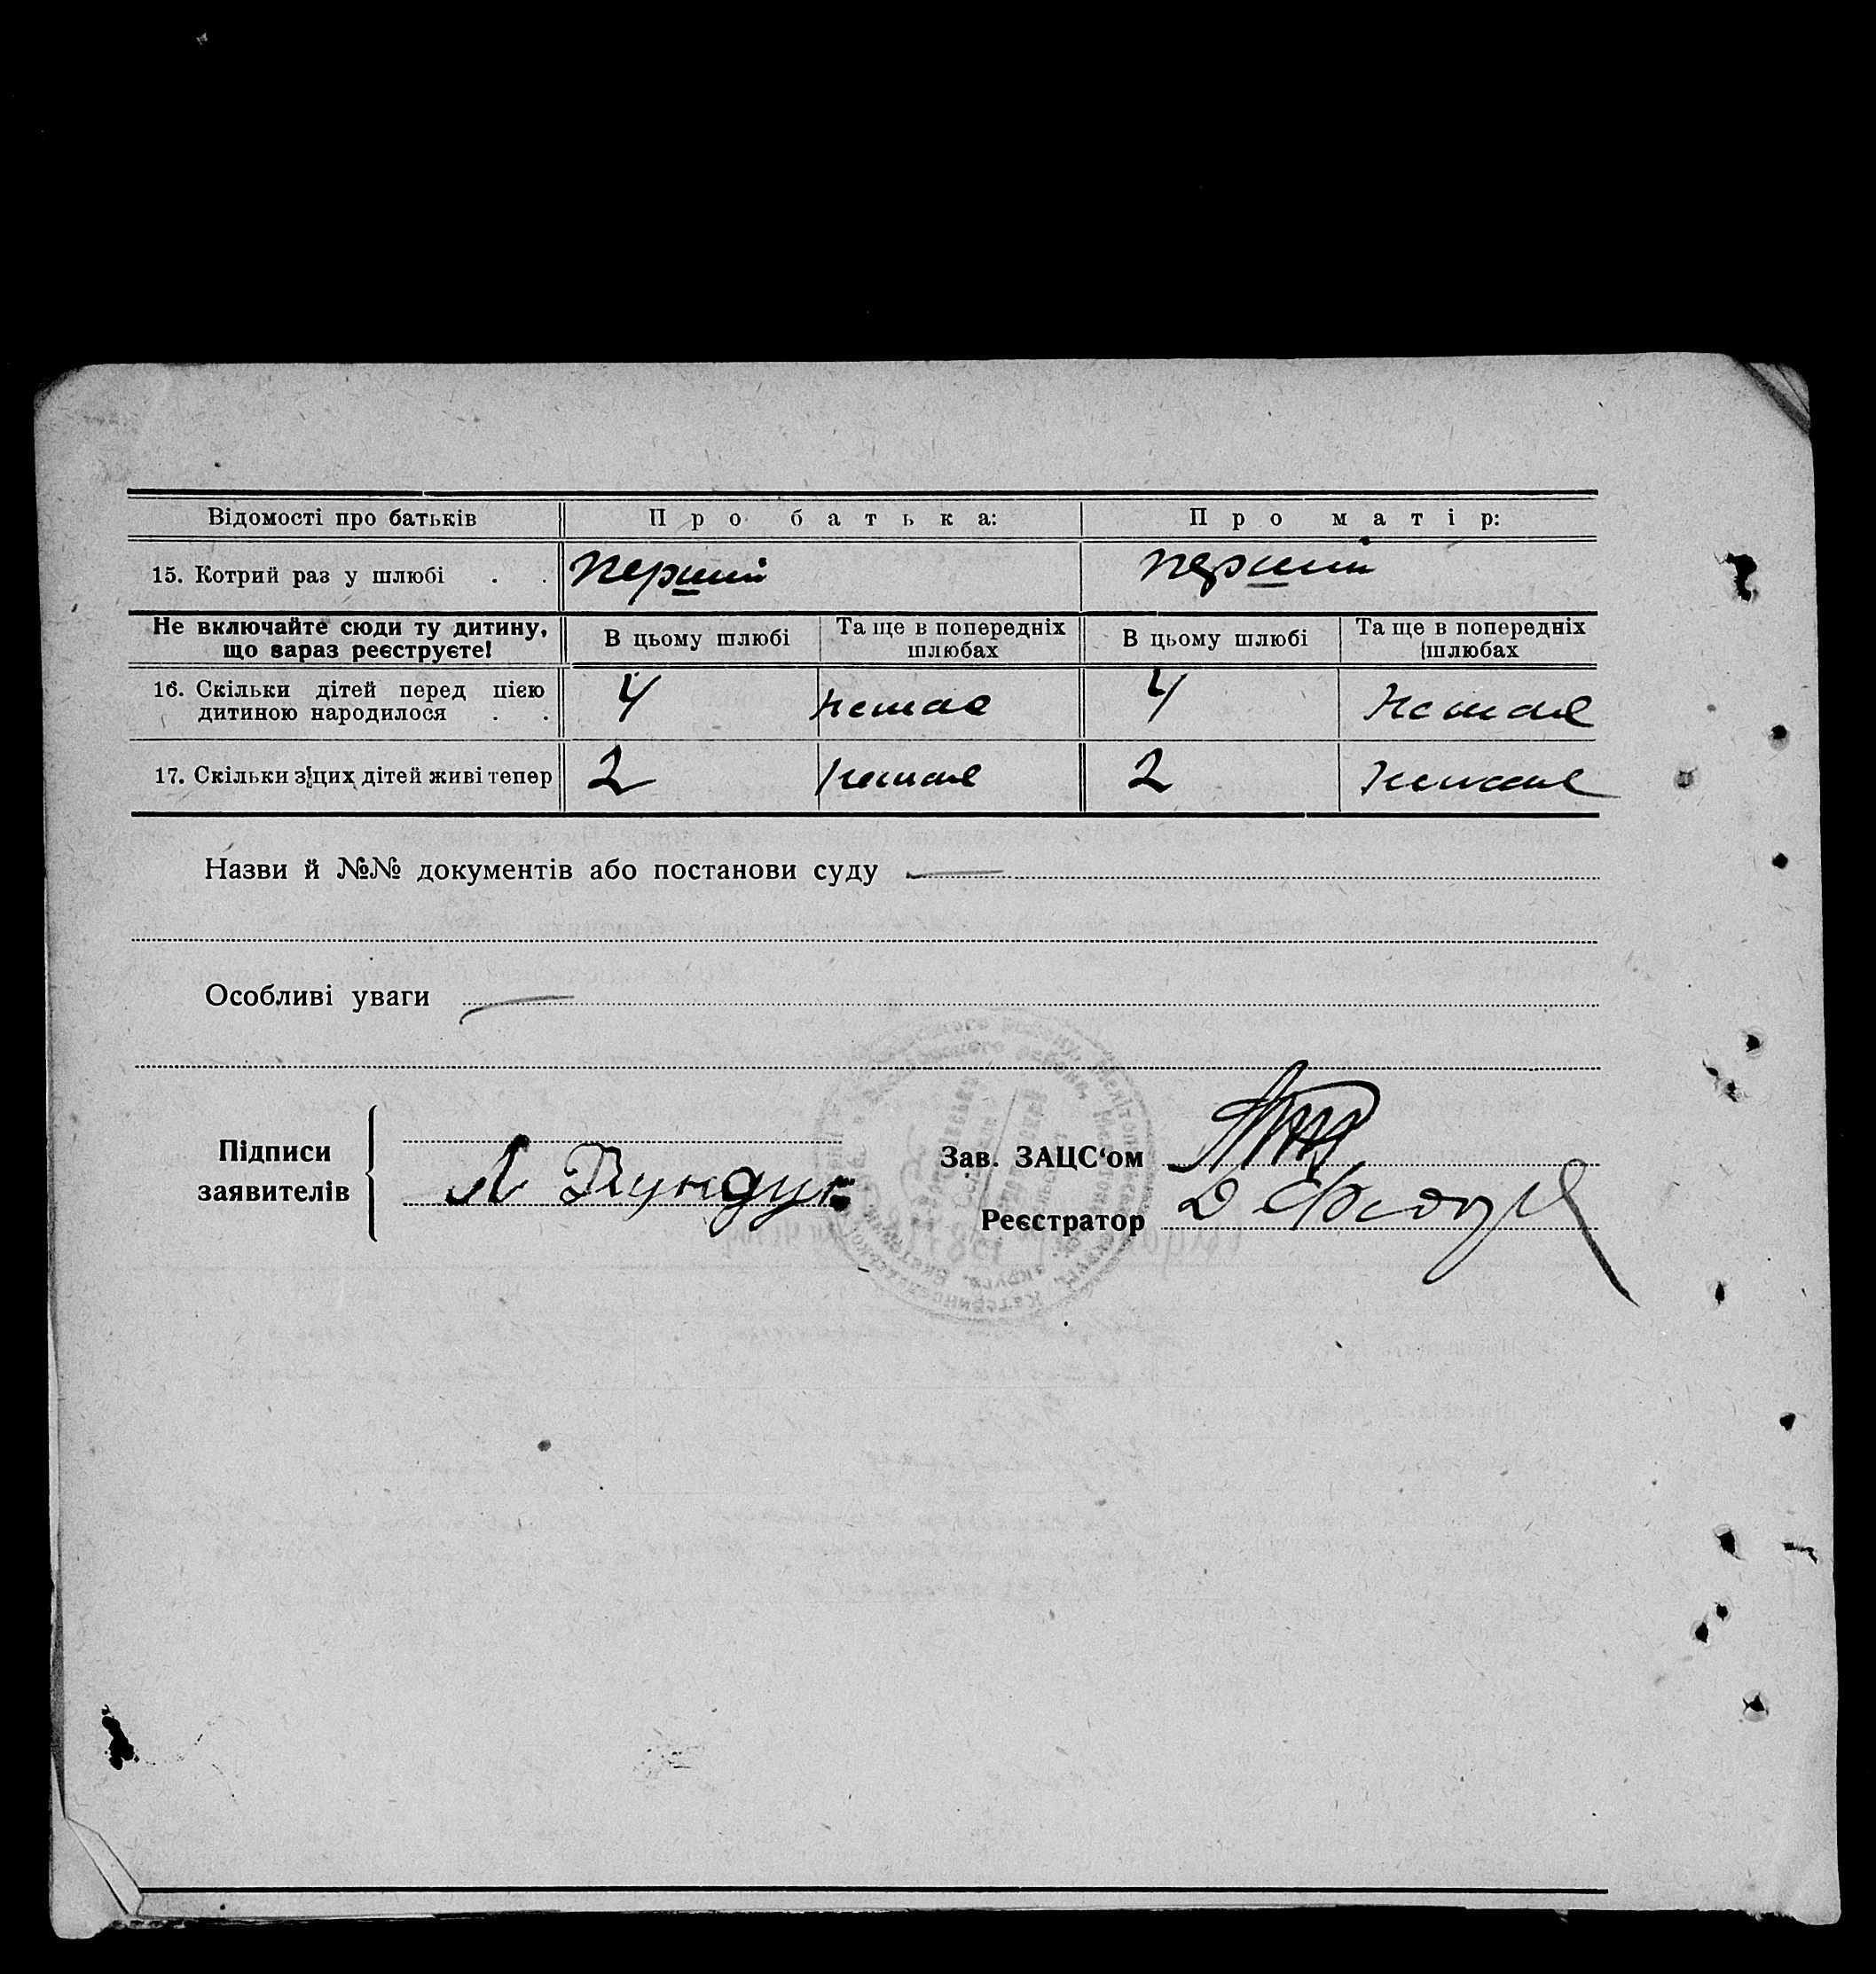 Відомості про батьків Про батька: Про матір:
15. Котрий раз у шлюбі . . перший перший
Не включайте сюди ту дитину, що зараз реєструєте! В цьому шлюбі Та ще в попередніх шлюбах В цьому шлюбі Та ще в попередніх шлюбах
16. Скільки дітей перед цією
дитиною народилося . . 4 немає 4 немає
17. Скільки з цих дітей живі тепер 2 немає 2 немає
Назви й №№ документів або постанови суду
Особливі уваги
Підписи
заявителів
Зав. ЗАЦС‘ом
Реєстратор